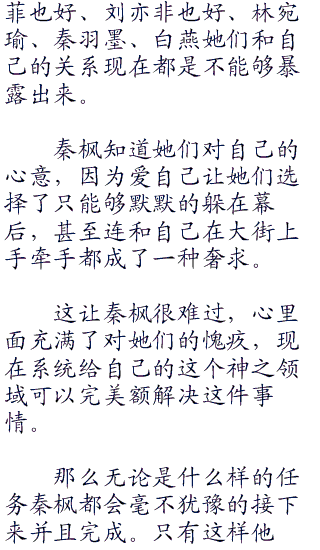 菲也好、刘亦非也好、林宛
瑜、秦羽墨、白燕她们和自
己的关系现在都是不能够暴
露出来。
秦枫知道她们对自己的
心意，因为爱自己让她们选
择了只能够默默的躲在幕
后，甚至连和自己在大街上
手牵手都成了一种奢求。
这让秦枫很难过，心里
面充满了对她们的愧疚，现
在系统给自己的这个神之领
域可以完美额解决这件事
情。
那么无论是什么样的任
务秦枫都会毫不犹豫的接下
来并且完成。只有这样他